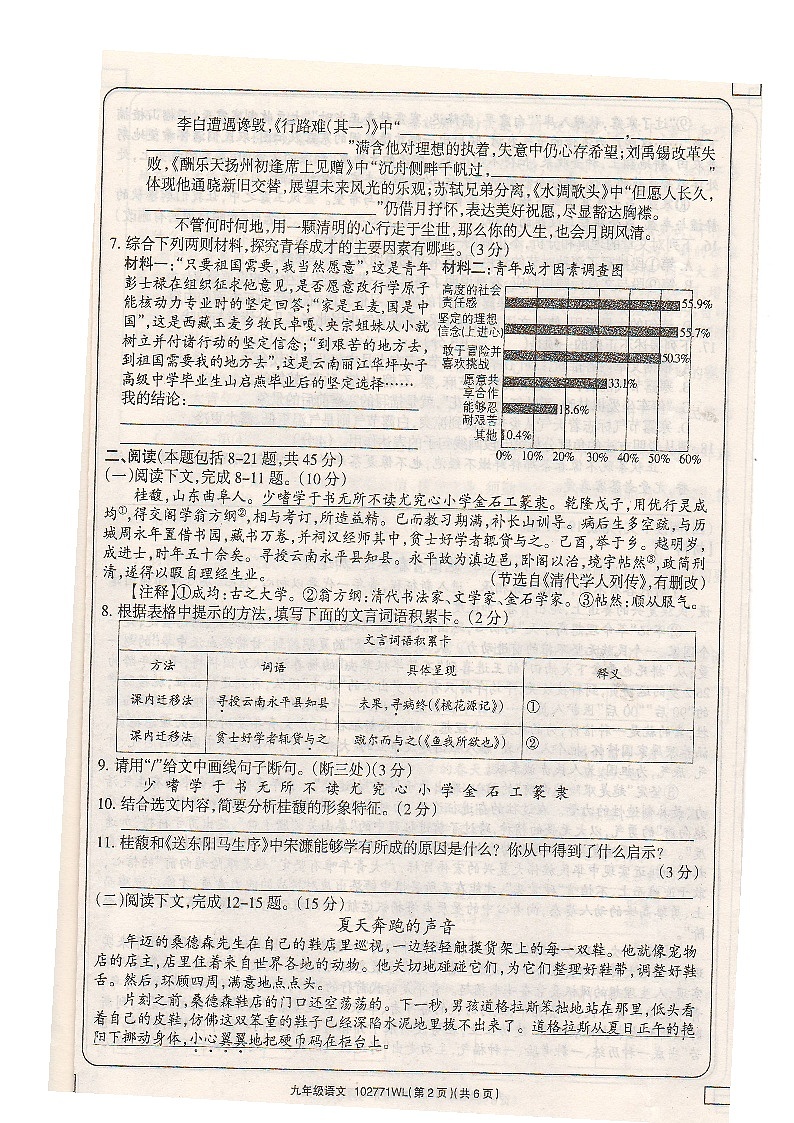 李白遭遇谗毁,《行路难(其一)》中“____________________,__________
____________________”满含他对理想的执着,失意中仍心存希望;刘禹锡改革失
败,《酬乐天扬州初逢席上见赠》中“沉舟侧畔千帆过,____________________”
体现他通晓新旧交替,展望未来风光的乐观;苏轼兄弟分离,《水调歌头》中“但愿人长久,
____________________”仍借月抒怀,表达美好祝愿,尽显豁达胸襟。
不管何时何地,用一颗清明的心行走于尘世,那么你的人生,也会月朗风清。
7. 综合下列两则材料,探究青春成才的主要因素有哪些。(3 分)
材料一:“只要祖国需要,我当然愿意”,这是青年
彭士禄在组织征求他意见,是否愿意改行学原子
能核动力专业时的坚定回答;“家是玉麦,国是中
国”,这是西藏玉麦乡牧民卓嘎、央宗姐妹从小就
树立并付诸行动的坚定信念;“到艰苦的地方去,
到祖国需要我的地方去”,这是云南丽江华坪女子
高级中学毕业生山启燕毕业后的坚定选择……
我的结论:____________________
材料二:青年成才因素调查图
高度的社会
责任感 55.9%
坚定的理想
信念(上进心) 55.7%
敢于冒险并
喜欢挑战 50.3%
愿意共
享合作 33.1%
能够忍
耐艰苦 18.6%
其他 0.4%
0% 10% 20% 30% 40% 50% 60%
二、阅读(本题包括 8-21 题,共 45 分)
(一)阅读下文,完成 8-11 题。(10 分)
桂馥,山东曲阜人。少嗜学于书无所不读尤究心小学金石工篆隶。乾隆戊子,用优行灵成
均①,得交阁学翁方纲②,相与考订,所造益精。已而教习期满,补长山训导。病后生多空疏,与历
城周永年置借书园,藏书万卷,并祠汉经师其中,贫士好学者辄赀与之。己酉,举于乡。越明岁,
成进士,时年五十余矣。寻授云南永平县知县。永平故为滇边邑,卧阁以治,境宇帖然③,政简刑
清,遂得以暇自理经生业。 (节选自《清代学人列传》,有删改)
【注释】①成均:古之大学。②翁方纲:清代书法家、文学家、金石学家。③帖然:顺从服气。
8. 根据表格中提示的方法,填写下面的文言词语积累卡。(2 分)
文言词语积累卡
方法 词语 具体呈现 释义
课内迁移法 寻授云南永平县知县 未果,寻病终(《桃花源记》) ①
课内迁移法 贫士好学者辄赀与之 蹴尔而与之(《鱼我所欲也》) ②
9. 请用“/”给文中画线句子断句。(断三处)(3 分)
少 嗜 学 于 书 无 所 不 读 尤 究 心 小 学 金 石 工 篆 隶
10. 结合选文内容,简要分析桂馥的形象特征。(2 分)
11. 桂馥和《送东阳马生序》中宋濂能够学有所成的原因是什么?你从中得到了什么启示?
(3 分)
(二)阅读下文,完成 12-15 题。(15 分)
夏天奔跑的声音
年迈的桑德森先生在自己的鞋店里巡视,一边轻轻触摸货架上的每一双鞋。他就像宠物
店的店主,店里住着来自世界各地的动物。他关切地碰碰它们,为它们整理好鞋带,调整好鞋
舌。然后,环顾四周,满意地点点头。
片刻之前,桑德森鞋店的门口还空荡荡的。下一秒,男孩道格拉斯笨拙地站在那里,低头看
着自己的皮鞋,仿佛这双笨重的鞋子已经深陷水泥地里拔不出来了。道格拉斯从夏日正午的艳
阳下挪动身体,小心翼翼地把硬币码在柜台上。
九年级语文 102771WL(第 2 页)(共 6 页)